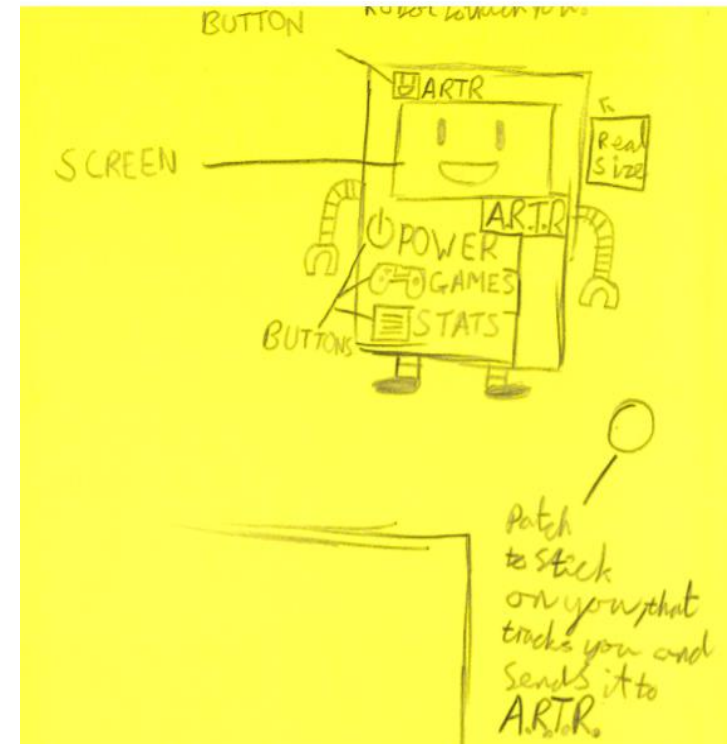 BUTTON
ARTR
SCREEN
Real
Size
A.R.T.R
POWER
GAMES
STATS
BUTTONS
Patch
to stick
on you, that
tracks you and
sends it to
A.R.T.R.